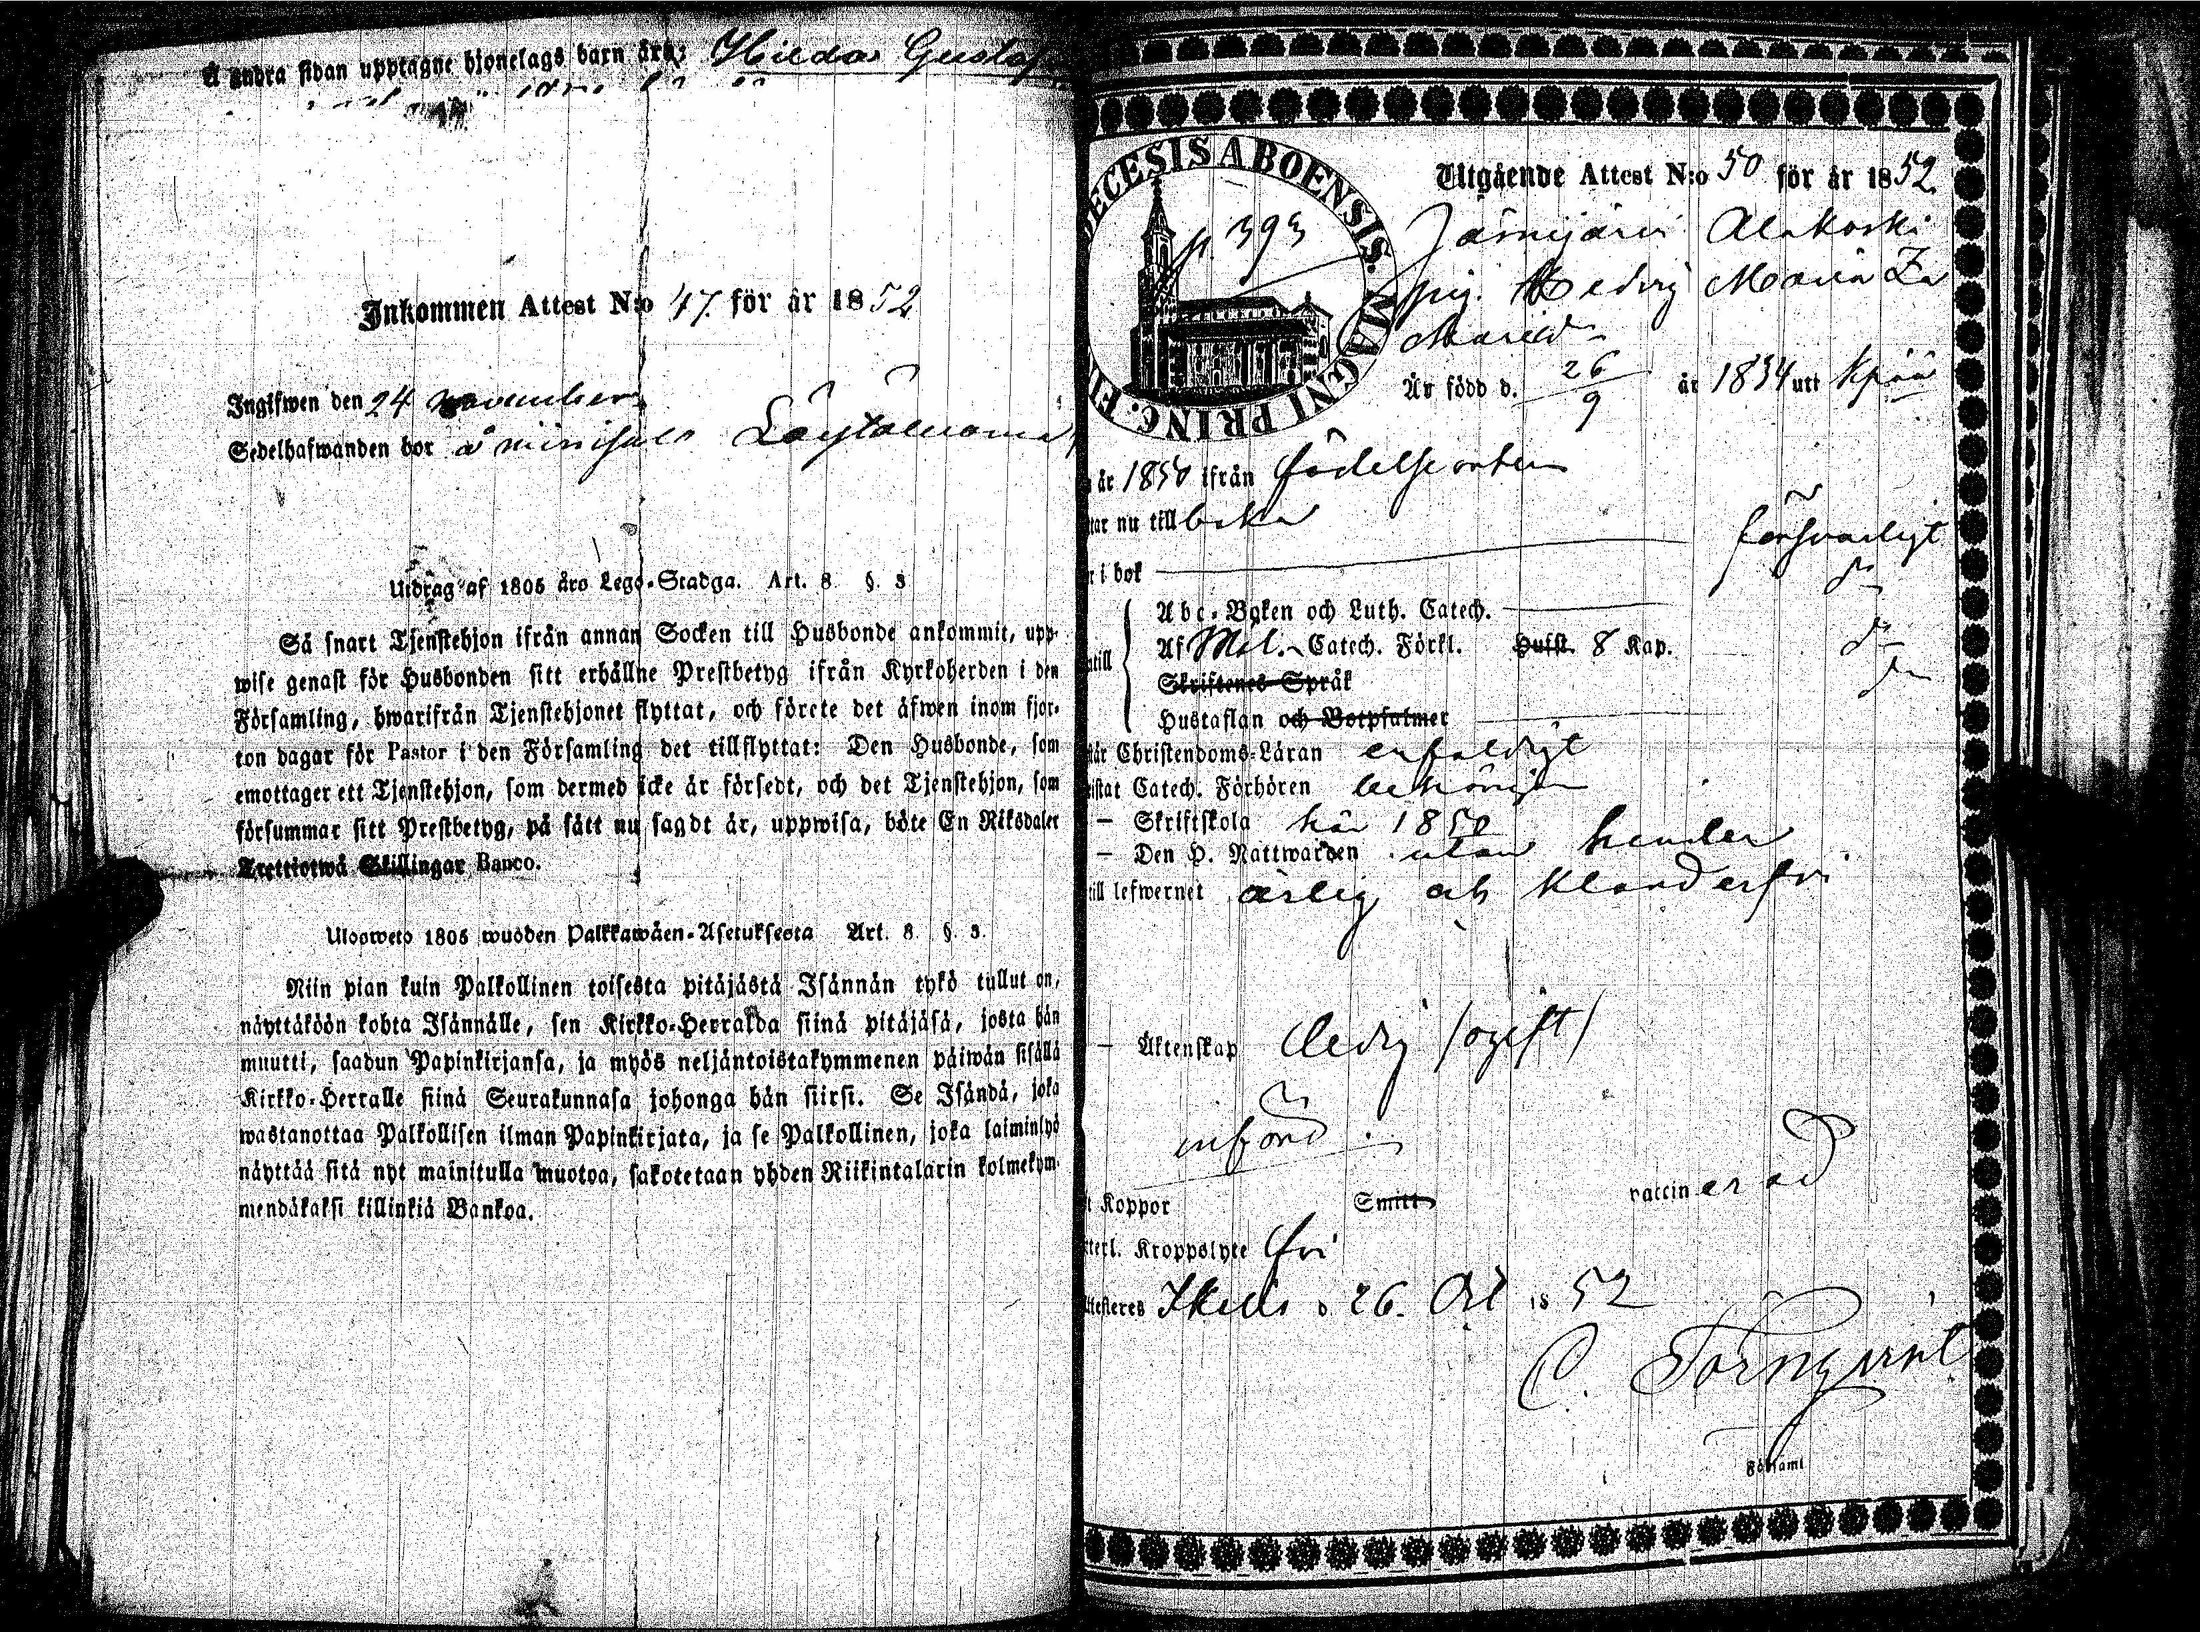 Å andra sidan upptagne hjonelags barn äro: Hilda Gustaf
Inkommen Attest N:o 47. för år 1852
Ingifwen den 24 november
Sedelhafwanden bor å
Utdrag af 1805 års Lego-Stadga. Art. 8 §. 3
Så snart Tjenstehjon ifrån annan Socken till Husbonde ankommit, upp-
wise genast för Husbonden sitt erhållne Prestbetyg ifrån Kyrkoherden i den
Församling, hwarifrån Tjenstehjonet flyttat, och förete det äfwen inom fjor-
ton dagar för Pastor i den Församling det tillflyttat: Den Husbonde, som
emottager ett Tjenstehjon, som dermed icke är försedt, och det Tjenstehjon, som
försummar sitt Prestbetyg, på sätt nu sagdt är, uppwisa, böte En Riksdaler
Trettiotwå Skillingar Banco.
Ulosweto 1805 wuoden Palkkawäen-Asetuksesta Art. 8 §. 3.
Niin pian kuin Palkollinen toisesta pitäjästä Isännän tykö tullut on,
näyttäköön kohta Isännälle, sen Kirkko-Herralda siinä pitäjäsä, josta hän
muutti, saadun Papinkirjansa, ja myös neljäntoistakymmenen päiwän sisällä
Kirkko-Herralle siinä Seurakunnasa johonga hän siirsi. Se Isändä, joka
wastanottaa Palkollisen ilman Papinkirjata, ja se Palkollinen, joka laiminlyö
näyttää sitä nyt mainitulla muotoa, sakotetaan yhden Riikintalarin kolmekym-
mendäkaksi killinkiä Bankoa.
ECESIS ABOENSIS. MAGNI PRINC. FI
p. 393
Utgående Attest N:o 50 för år 1852.
Alakoski
pig. Hedvig Maria
Är född d. 26/9 år 1834 uti
år 1850 ifrån födelseorten
tar nu tillbaka
r i bok försvarligt
Abc-Boken och Luth. Catech. do
Af Mol. Catech. Förkl. Hufst. 8 Kap. do
Skriftenes Språk
Hustaflan och Botpsalmer do
tår Christendoms-Läran enfaldigt
istat Catech. Förhören behörigen
– Skriftskola här 1850
– Den H. Nattwarden utan hinder
till lefwernet ärlig och klanderfri
– Äktenskap ledig (ogift)
införd.
t Koppor Smitt vaccinerad
terl. Kroppslyte fri
ttesteras d. 26. Oct 1852
C. Törnqvist